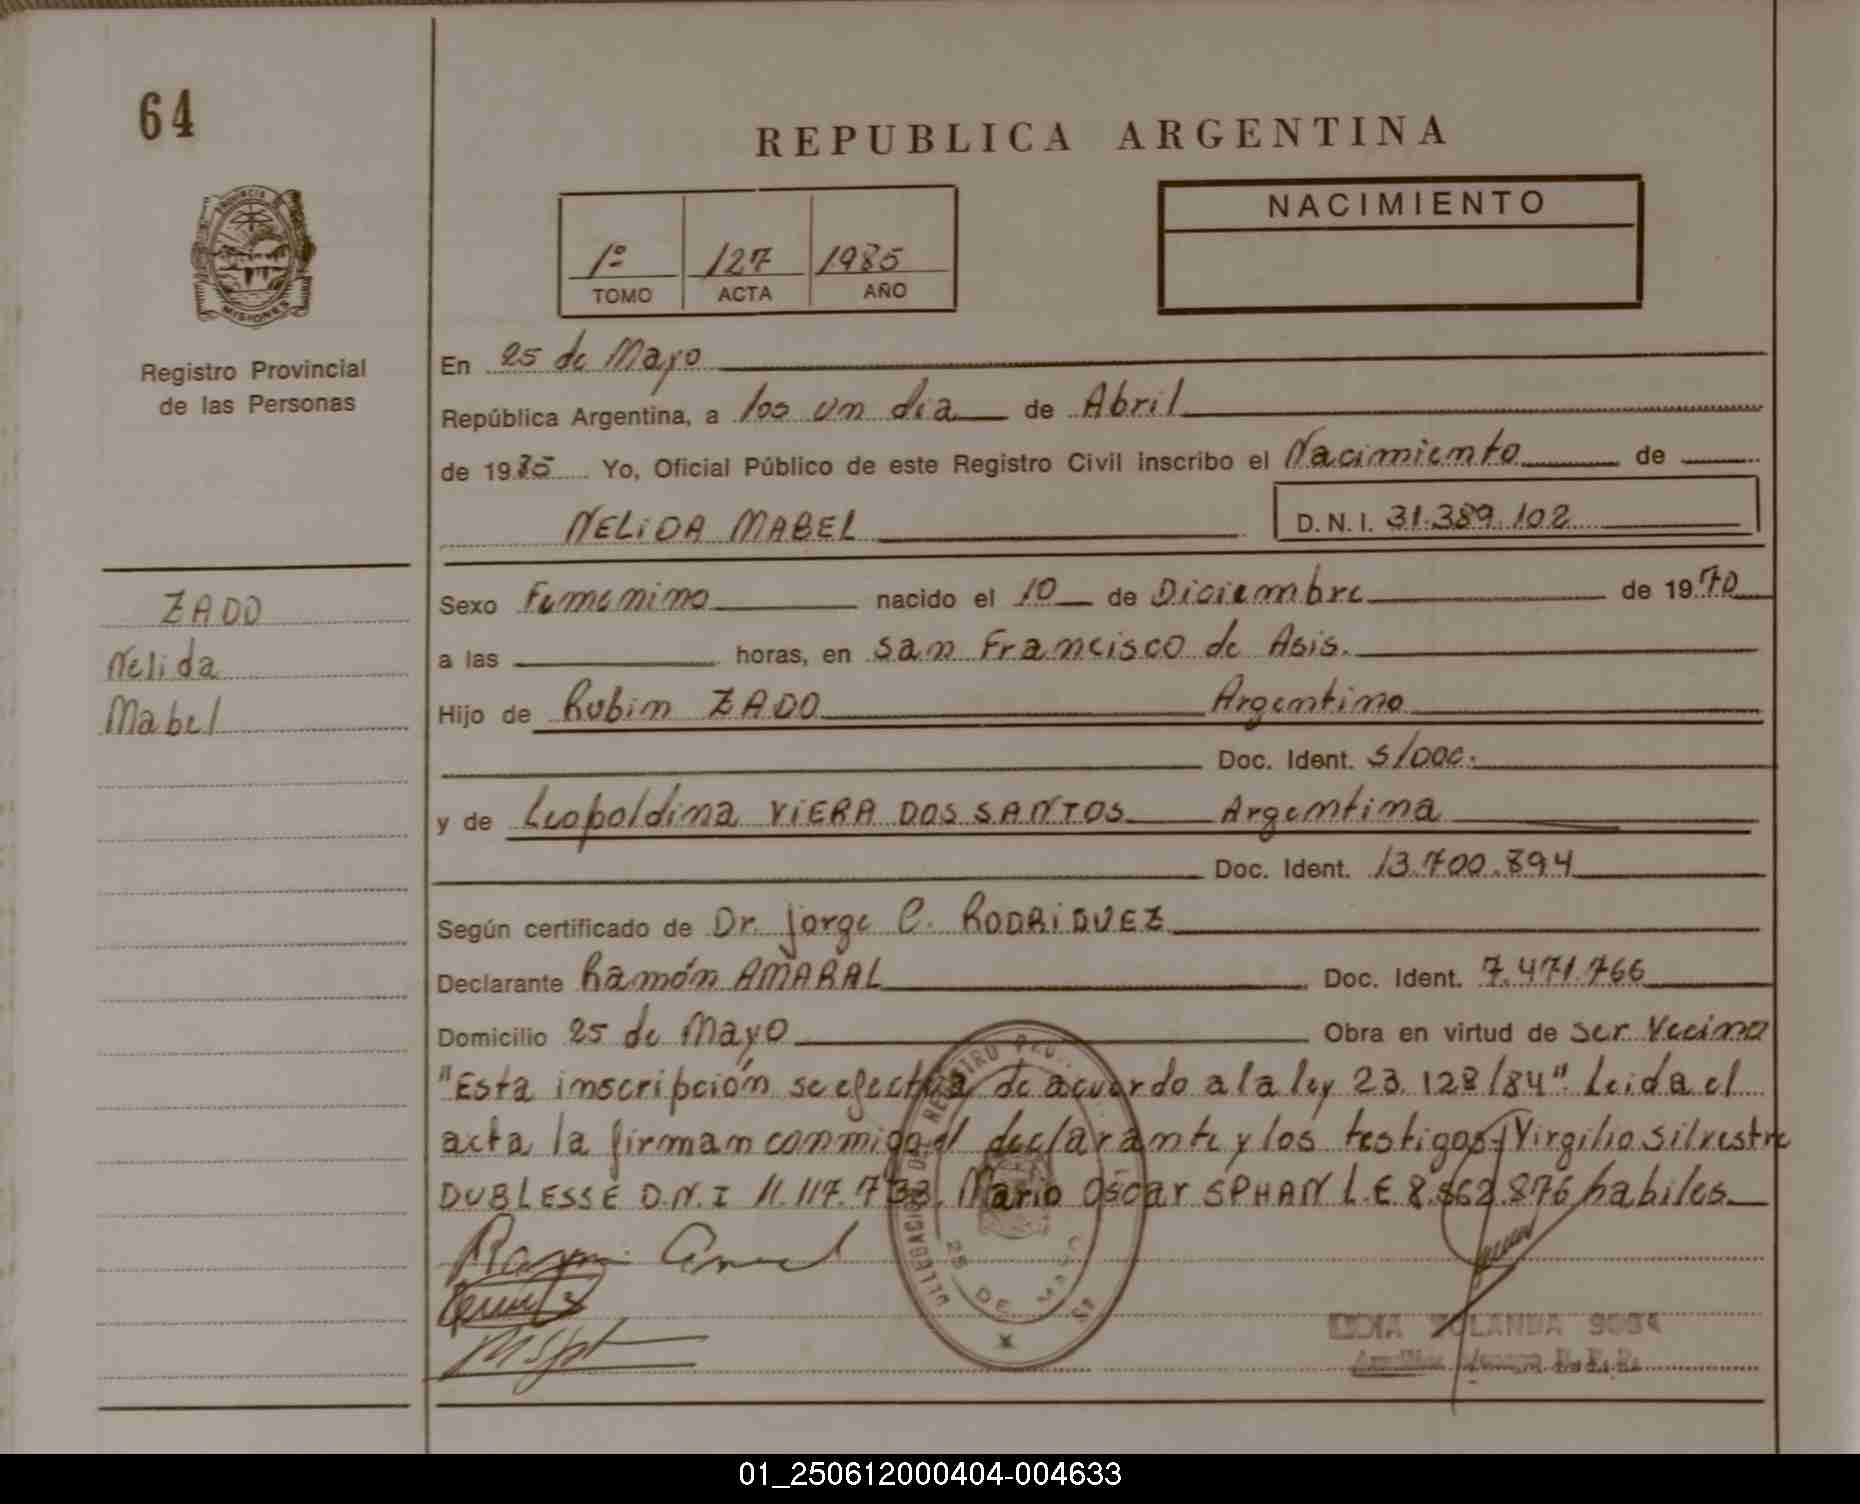 64
REPUBLICA ARGENTINA
PROVINCIA DE
MISIONES
Registro Provincial
de las Personas
1º 127 1985
TOMO ACTA AÑO
NACIMIENTO
En 25 de Mayo
República Argentina, a los un dia de Abril
de 1985 Yo, Oficial Público de este Registro Civil inscribo el Nacimiento de
NELIDA MABEL D.N.I. 31.389.102
ZADO
Nelida
Mabel
Sexo Femenino nacido el 10 de Diciembre de 1970
a las horas, en San Francisco de Asis.
Hijo de Rubin ZADO Argentino
Doc. Ident. S/DOC.
y de Leopoldina VIERA DOS SANTOS Argentina
Doc. Ident. 13.700.894
Según certificado de Dr. Jorge C. RODRIGUEZ
Declarante Ramón AMARAL Doc. Ident. 7.471.766
Domicilio 25 de Mayo Obra en virtud de ser Vecino
"Esta inscripción se efectúa de acuerdo a la ley 23.128/84". Leida el
acta la firman conmigo el declarante y los testigos: Virgilio Silvestre
DUBLESSE D.N.I 11.117.733, Mario Oscar SPHAN L.E 8.562.876 habiles
25 DE MAYO
01_250612000404-004633